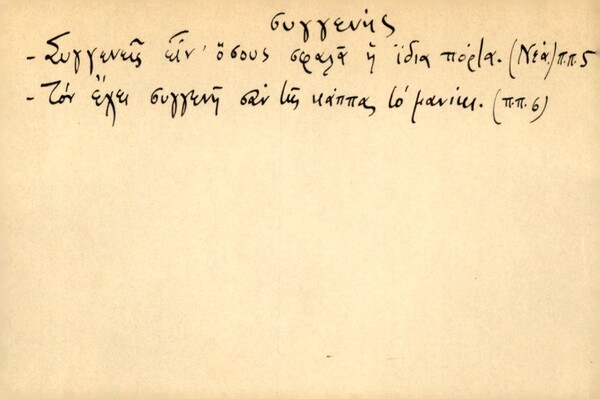 συγγενής
- Συγγενεῖς εἶν' ὅσους σφαλᾶ ἡ ἴδια πόρτα. (Νεά.) π.π. 5
- Τόν ἔχει συγγενῆ σάν τῆς κάππας τό μανίκι. (π.π. 6)